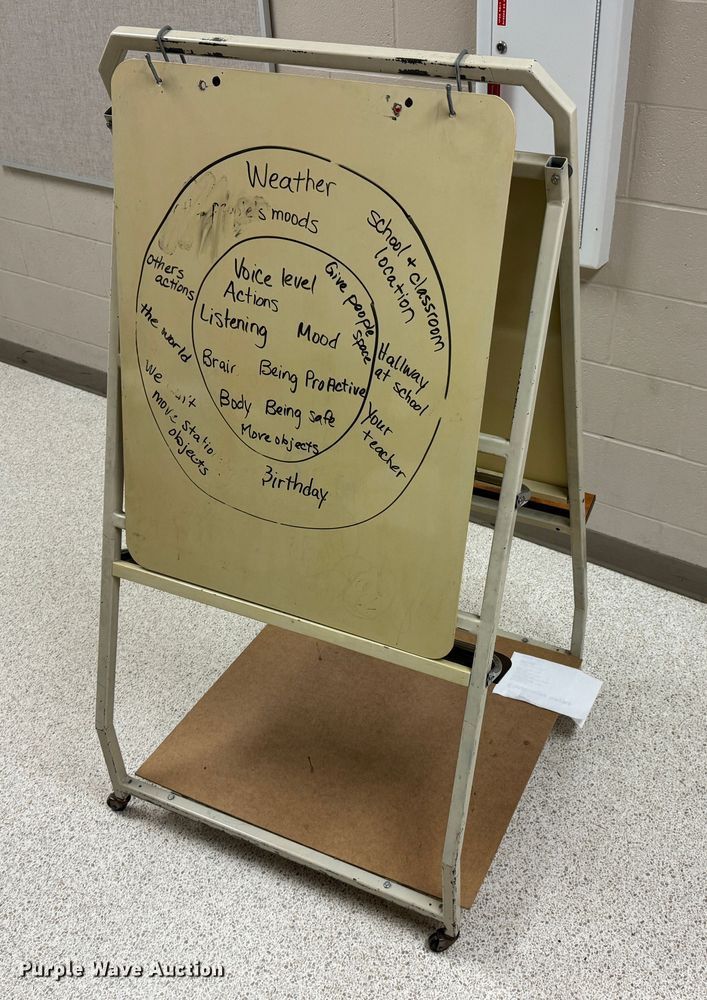 Weather
moods
school + classroom
location
others
actions
the world
move
objects
Voice level
Actions
Listening
Mood
Give people
space
Being ProActive
Body
Being safe
More objects
Hallway
at school
Your
teacher
Birthday
Purple Wave Auction